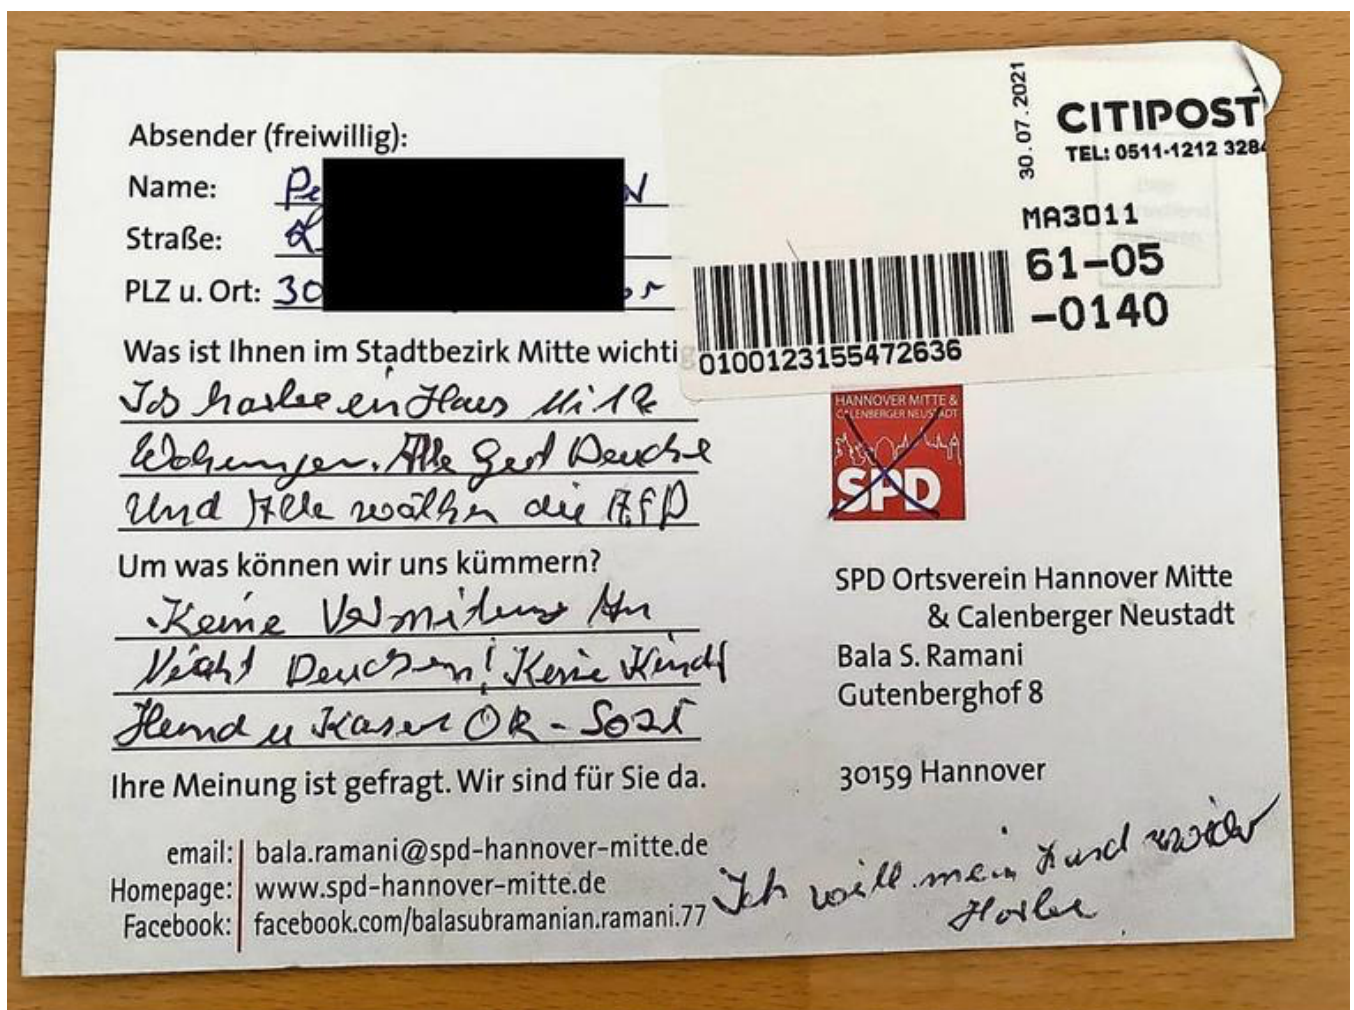 Absender (freiwillig):
Name: Pe
Straße:
PLZ u. Ort: 30
Was ist Ihnen im Stadtbezirk Mitte wichti
Ich habe ein Haus Mit 12
Wohungen. Alle Deuche
Und Alle wälhen die AFD
Um was können wir uns kümmern?
Keine Vermitung An
Nicht Deuchen! Keine Kindl
Hemd u Kaser OK - Sozi
Ihre Meinung ist gefragt. Wir sind für Sie da.
email: bala.ramani@spd-hannover-mitte.de
Homepage: www.spd-hannover-mitte.de
Facebook: facebook.com/balasubramanian.ramani.77
30.07.2021
CITIPOST
TEL: 0511-1212 328
MA3011
61-05
-0140
0100123155472636
HANNOVER MITTE &
CALENBERGER NEUSTADT
SPD
SPD Ortsverein Hannover Mitte
& Calenberger Neustadt
Bala S. Ramani
Gutenberghof 8
30159 Hannover
Ich will mein Land wieder
Haben